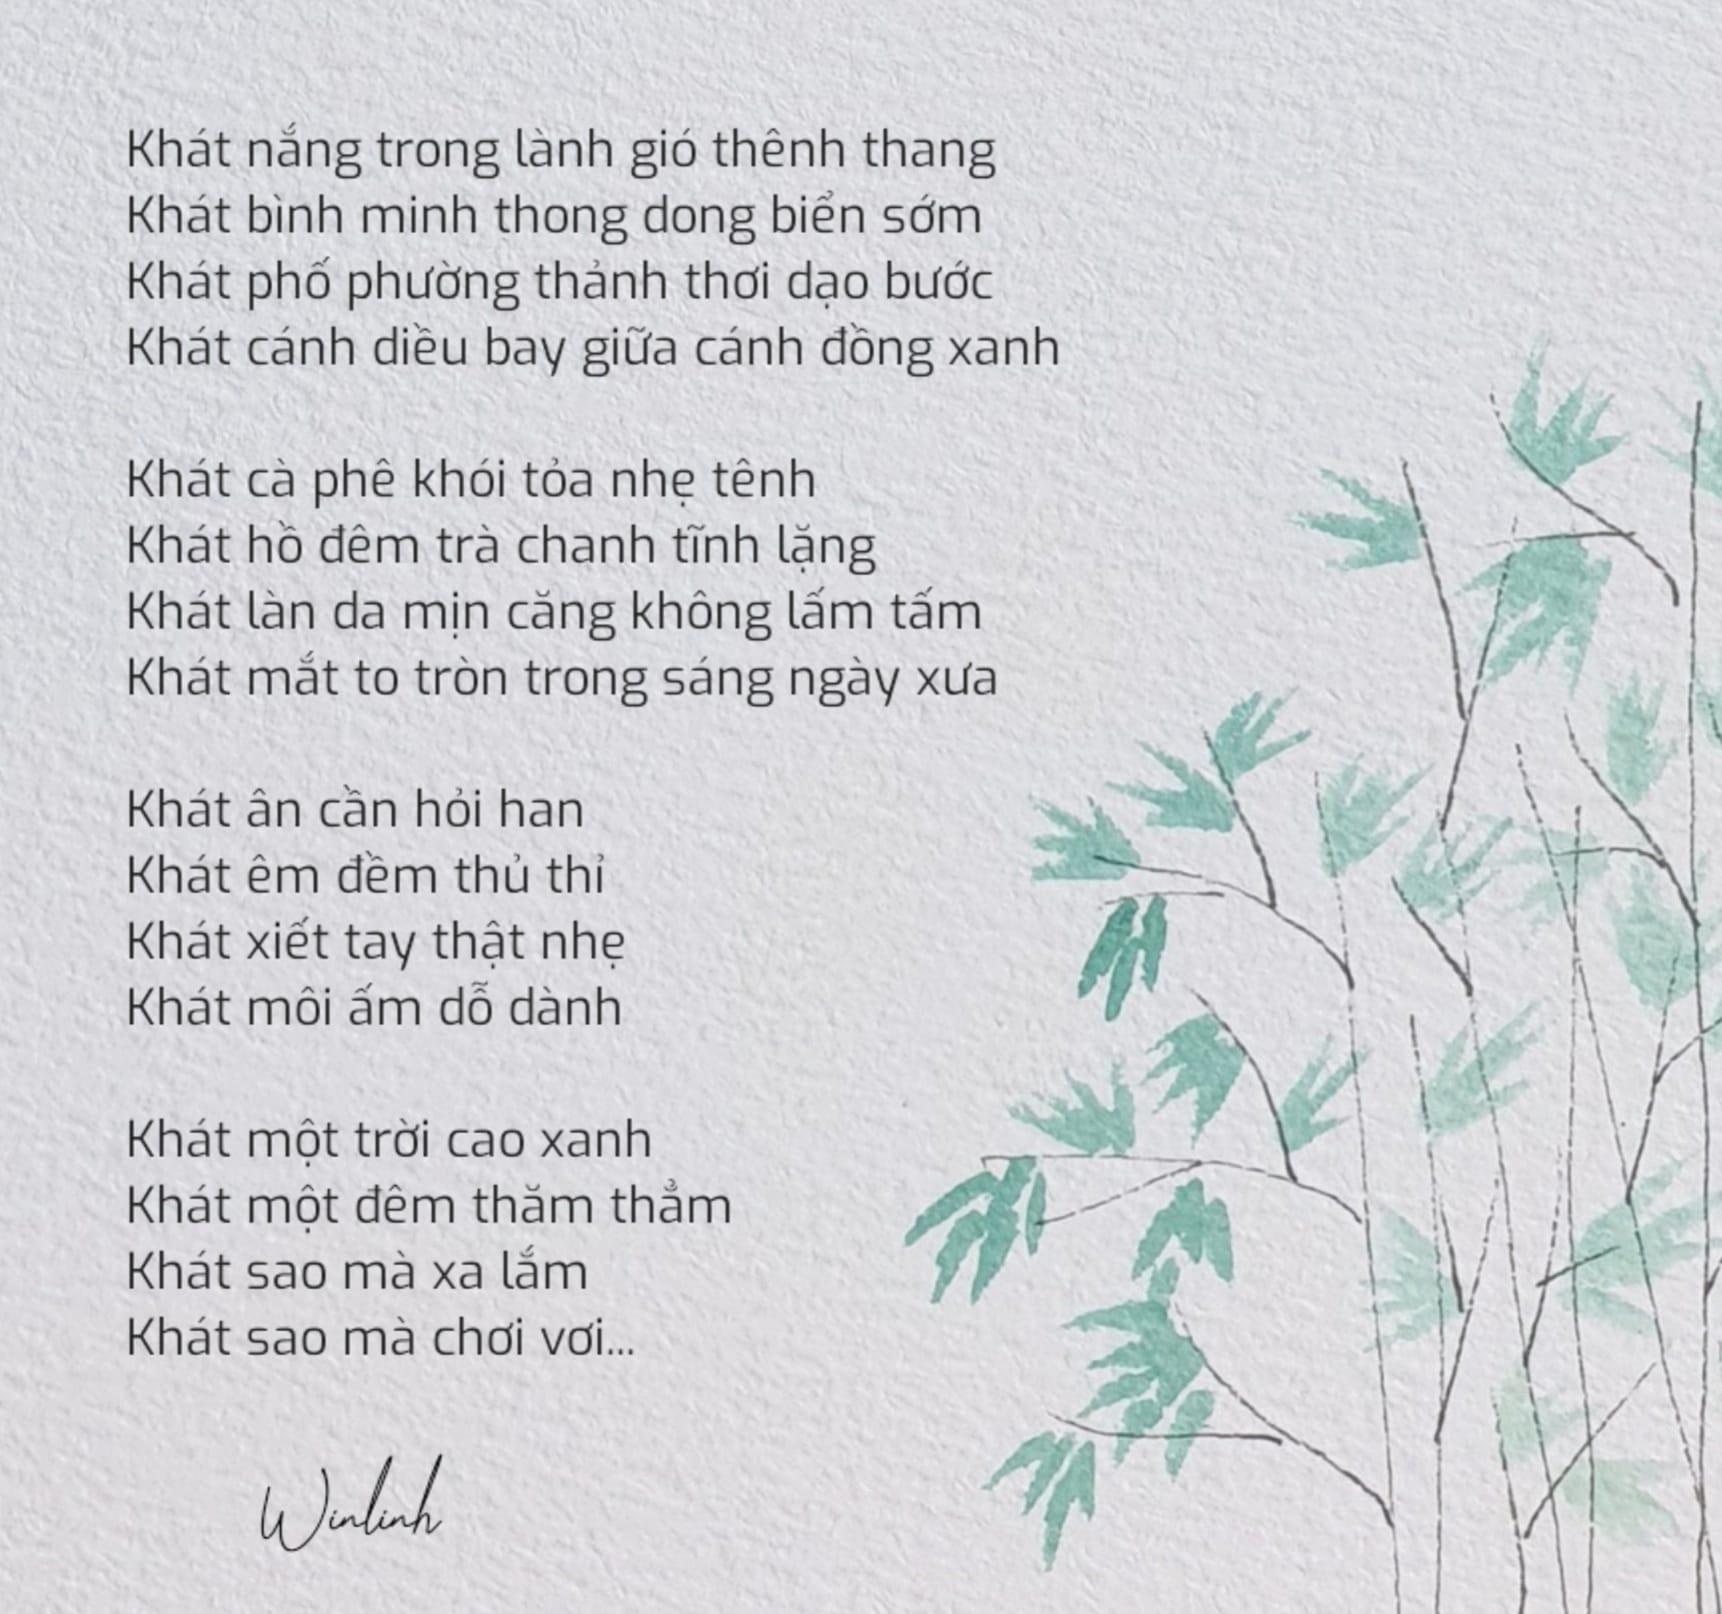 Khát nắng trong lành gió thênh thang
Khát bình minh thong dong biển sớm
Khát phố phường thảnh thơi dạo bước
Khát cánh diều bay giữa cánh đồng xanh
Khát cà phê khói tỏa nhẹ tênh
Khát hồ đêm trà chanh tĩnh lặng
Khát làn da mịn căng không lấm tấm
Khát mắt to tròn trong sáng ngày xưa
Khát ân cần hỏi han
Khát êm đềm thủ thỉ
Khát xiết tay thật nhẹ
Khát môi ấm dỗ dành
Khát một trời cao xanh
Khát một đêm thăm thẳm
Khát sao mà xa lắm
Khát sao mà chơi vơi...
Winlinh